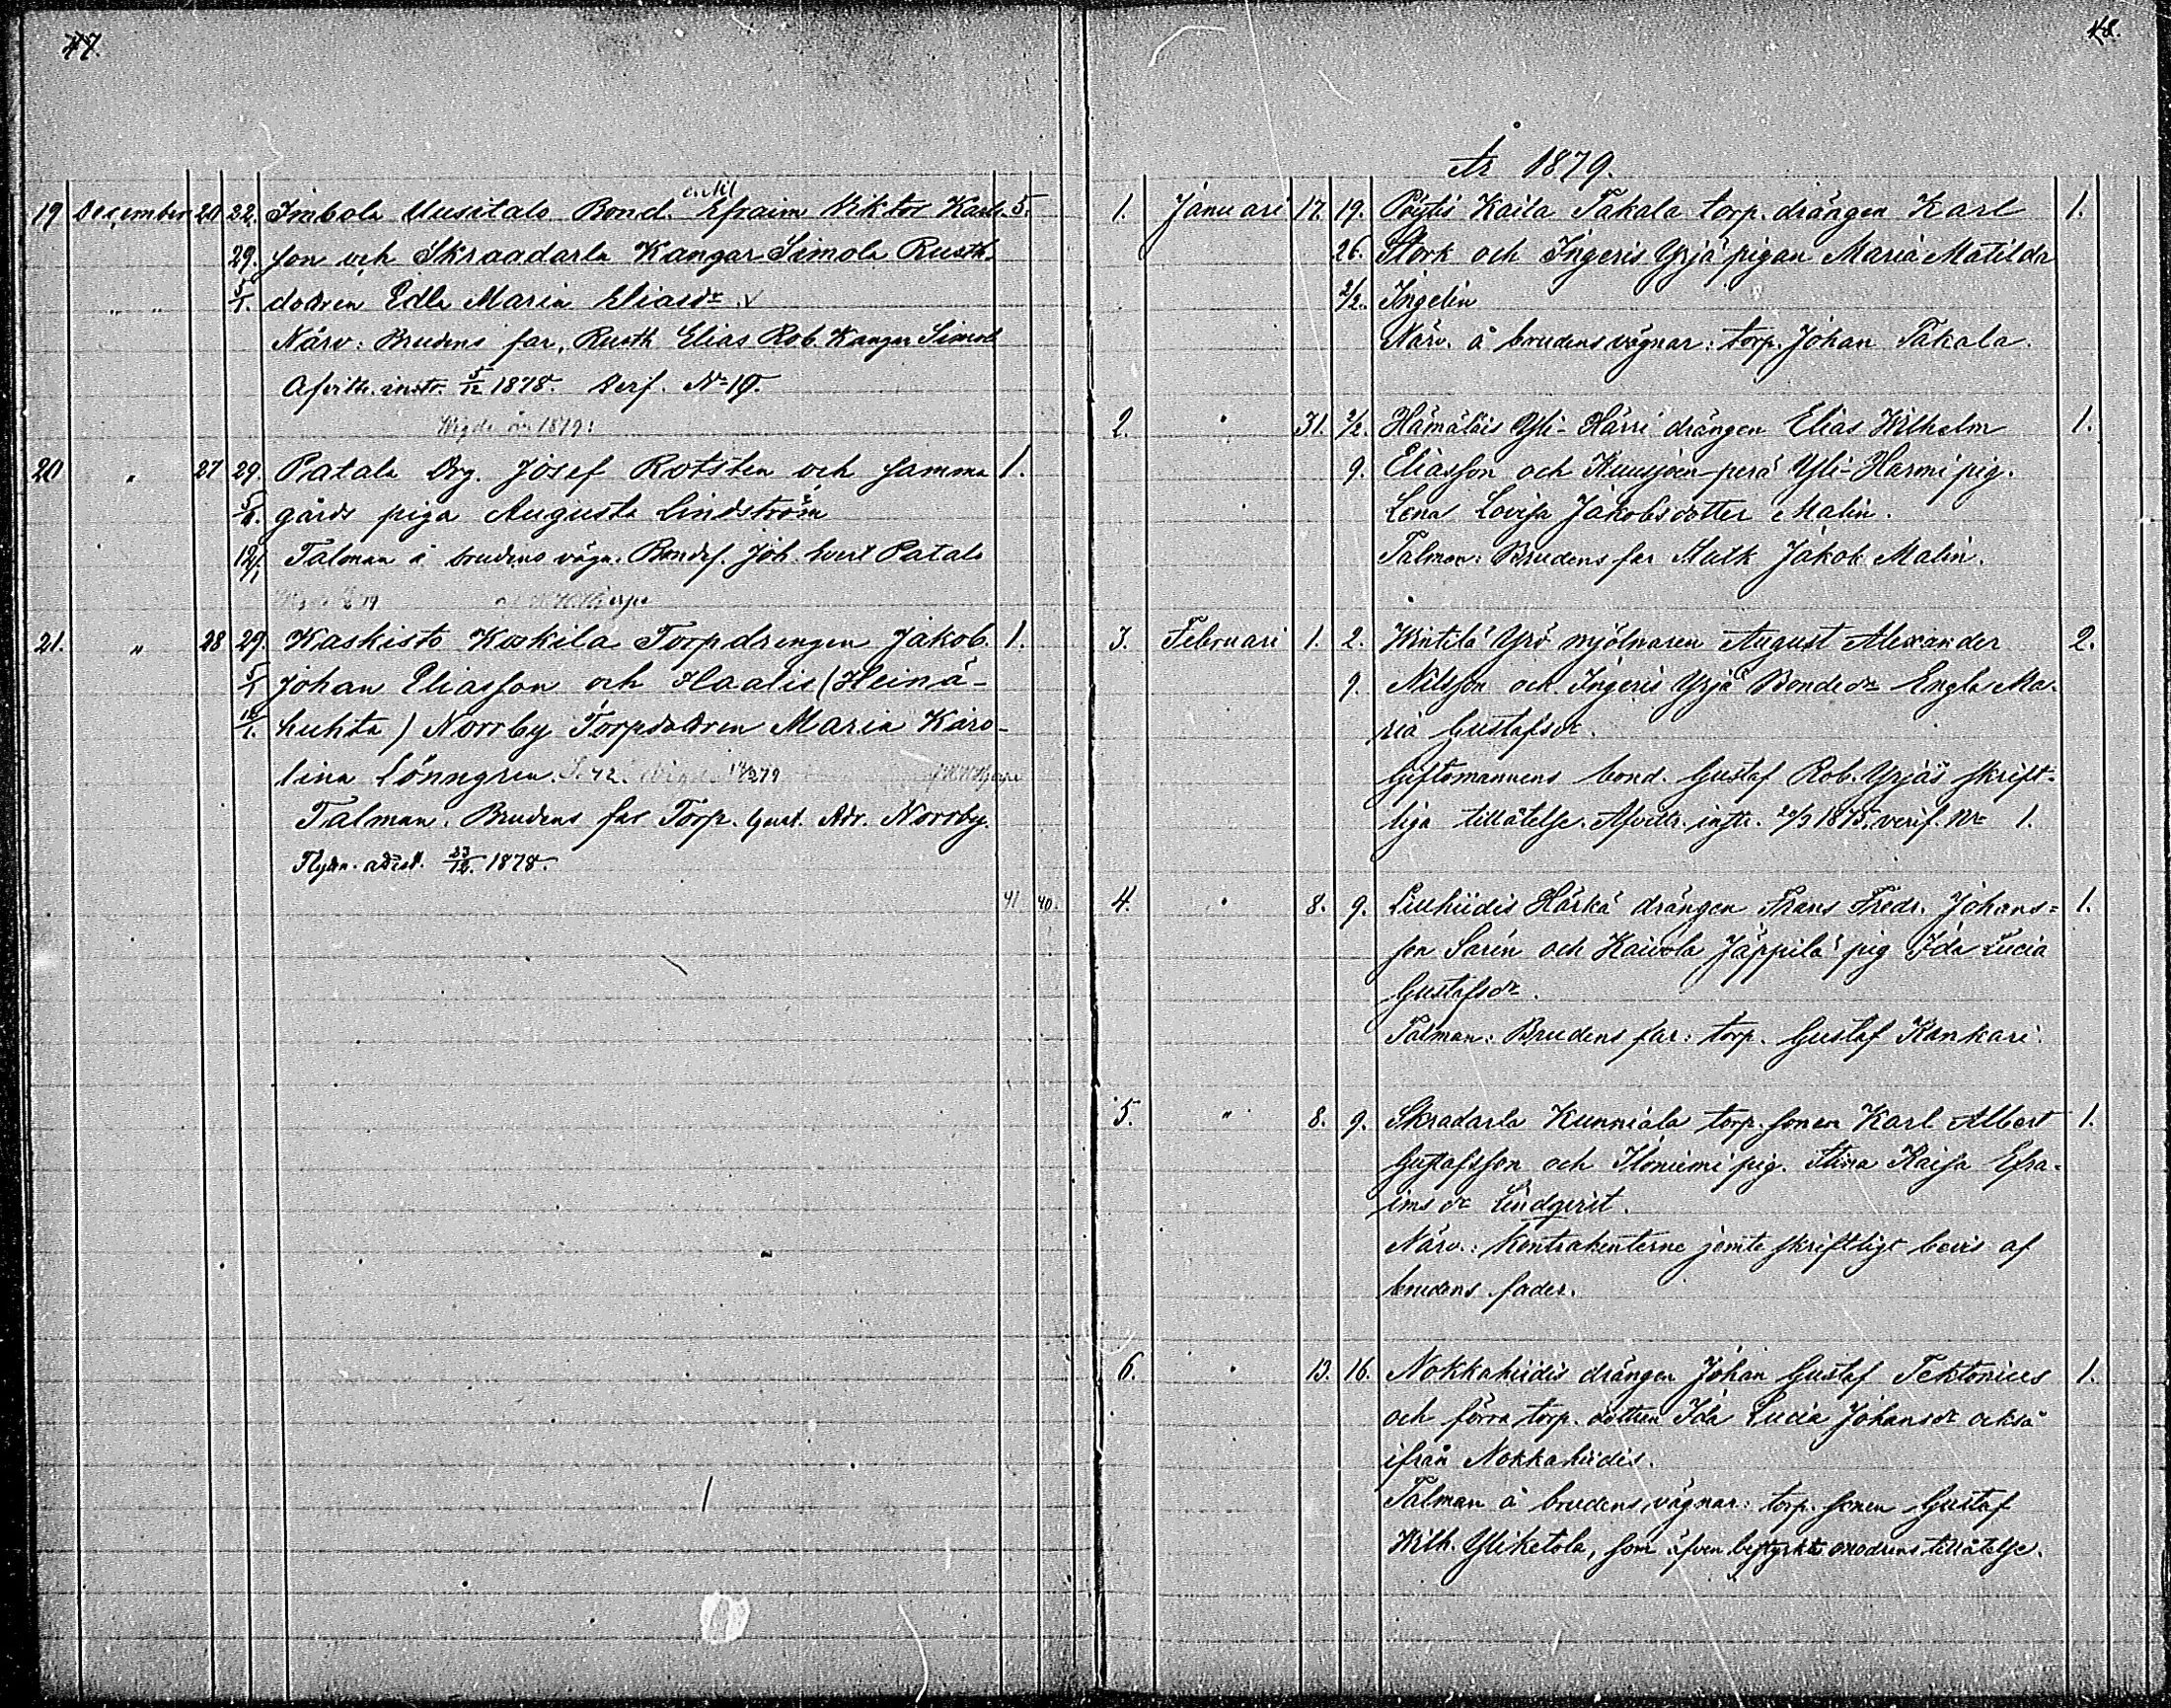 47.
19 December 20 22. Imbola Uusitalo Bond. enkl Efraim Viktor Karls- 5.
29. son och Skraadarla Kangar Simola Rusth.
" " 5/1. dottren Edla Maria Eliasdr.
Närv: Brudens far, Rusth Elias Rob. Kangar Simola
Afvittr. instr. 5/12 1878. Verif. No 19.
Wigde år 1879:
20 " 27 29. Patala Drg. Josef Rotsten och samma 1.
5/1. gårds piga Augusta Lindström
12/1. Talman å brudens vägn. Bondes. Joh. Patala
21. " 28 29. Kaskisto Koskila Torpdrengen Jakob. 1.
5/1 Johan Eliasson och Haalis (Heinä-
12/1. huhta) Norrby Torpdottren Maria Karo-
lina Lönngren.
Talman. Brudens far Torp. Gust. Adr. Norrby.
Flyttn. attest. 23/12. 1878.
41 40.
48.
År 1879.
1. Januari 17. 19. Pöytis Kaila Takala torp. drängen Karl 1.
26. Stork och Ingeris Yrjä pigan Maria Matilda
2/2. Ingelin
Närv. å brudens vägnar: torp. Johan Takala.
2. " 31. 2/2. Hämäläis Yli-Härri drängen Elias Wilhelm 1.
9. Eliasson och Kuusjoen-perä Yli-Harmi pig.
Lena Lovisa Jakobsdotter Malin.
Talman: Brudens far Statk Jakob Malin.
3. Februari 1. 2. Wintilä Yrö mjölnaren August Alexander 2.
9. Nilsson och Ingeris Yrjä Bondedr Engla Ma-
ria Gustafsdr.
Giftomannens bond. Gustaf Rob. Yrjäs skrift-
liga tillåtelse. Afvittr. instr. 20/9 1875. verif. No 1.
4. " 8. 9. Liuhiidis Härkä drängen Frans Fredr. Johans= 1.
son Sarin och Kaivola Jäppilä pig Ida Lucia
Gustafsdr.
Talman: Brudens far: torp. Gustaf Kankari.
5. " 8. 9. Skradarla Kunniala torp. sonen Karl Albert 1.
Gustafsson och Iloniemi pig. Stina Kaisa Efra-
imsdr Lindqvist.
Närv.: Kontrahenterne jemte skriftligt bevis af
brudens fader.
6. " 13. 16. Nokkahiidis drängen Johan Gustaf Tektonius 1.
och förra torp. dottren Ida Lucia Johansdr också
ifrån Nokkahiidis.
Talman å brudens vägnar: torp. sonen Gustaf
Wilh. Yliketola, som äfven bestyrkte modrens tillåtelse.